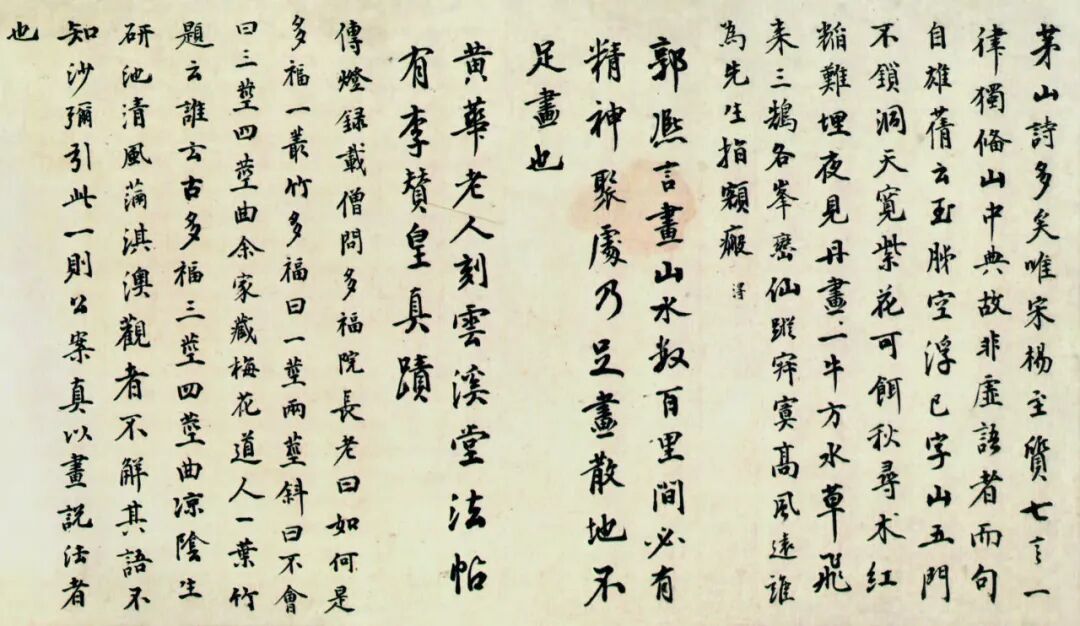 茅山詩多矣唯宋楊至質七言一
律獨脩山中典故非虛語者而句
自雄蒨云玉胏空浮巳字山五門
不鎖洞天寬紫花可餌秋尋朮紅
焰難埋夜見丹畫二牛方水草飛
来三鵠各峯巒仙蹤寂寞高風遠誰
為先生指額瘢 得
郭熈言畫山水数百里間必有
精神聚處乃足畫散地不
足畫也
黄華老人刻雲溪堂法帖
有李贊皇真蹟
傳燈録載僧問多福院長老曰如何是
多福一叢竹多福曰一莖兩莖斜曰不會
曰三莖四莖曲余家藏梅花道人一葉竹
題云誰云古多福三莖四莖曲凉陰生
研池清風滿淇澳觀者不解其語不
知沙彌引此一則公案真以畫説法者
也